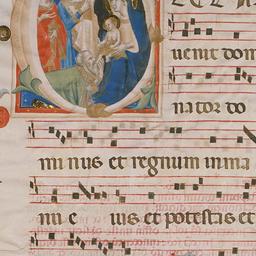 uenit dom
nator do
mi nus et regnum in ma
nu e ius et potestas et